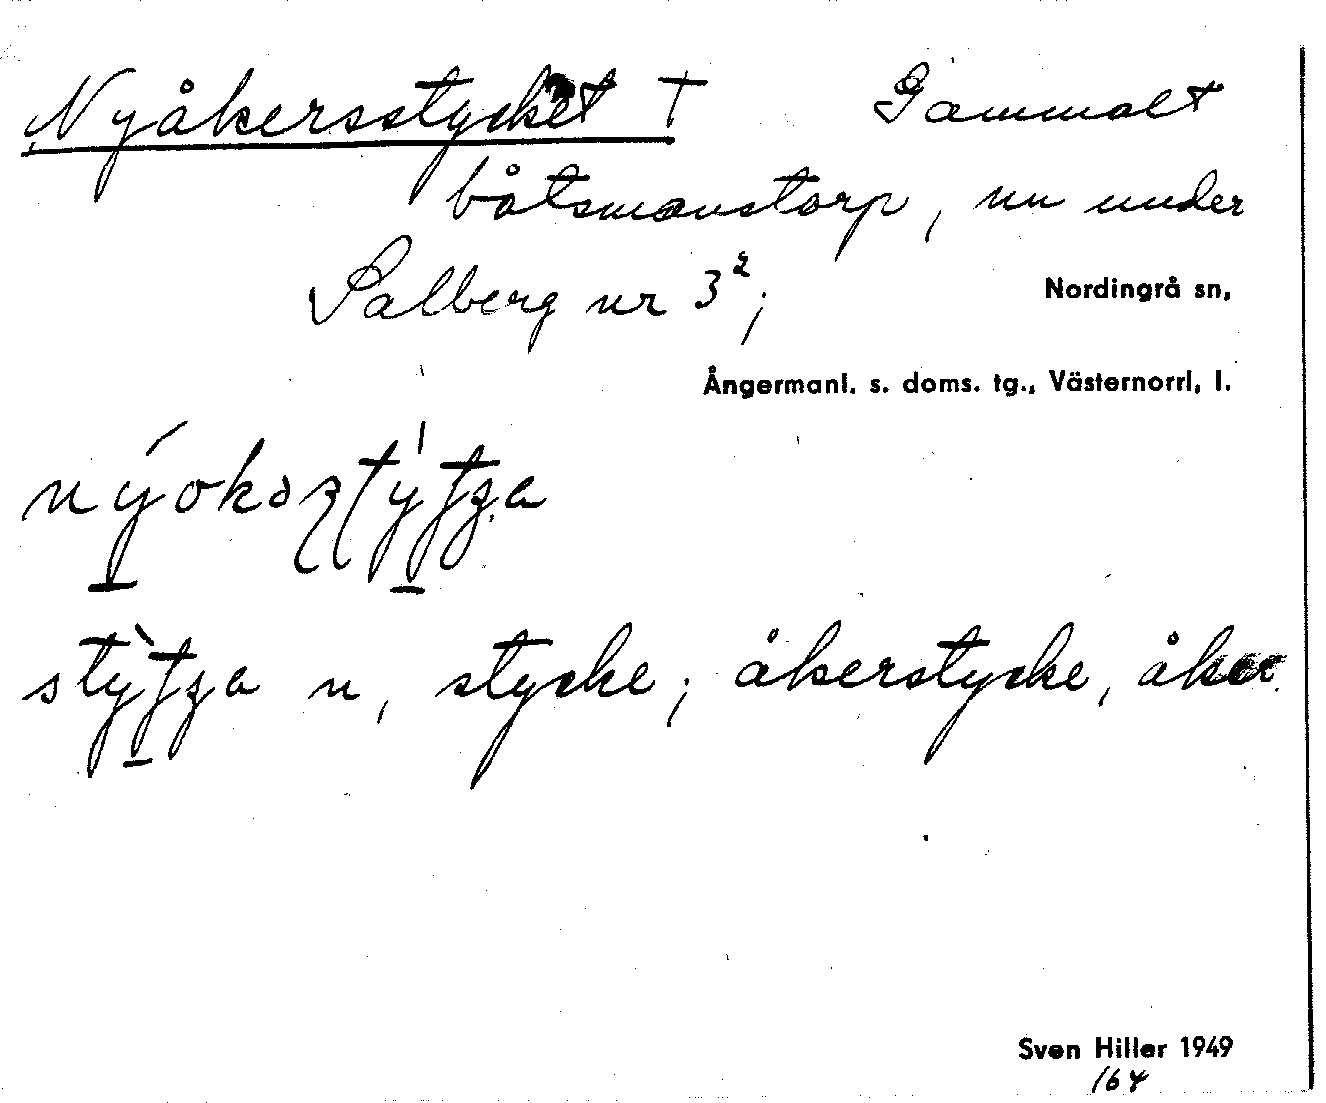 Nyåkersstycket † Gammalt
båtsmanstorp, nu under
Salberg nr 3²;
Nordingrå sn,
Ångermanl. s. doms. tg., Västernorrl, l.
stycke; åkerstycke, åker
Sven Hiller 1949
164